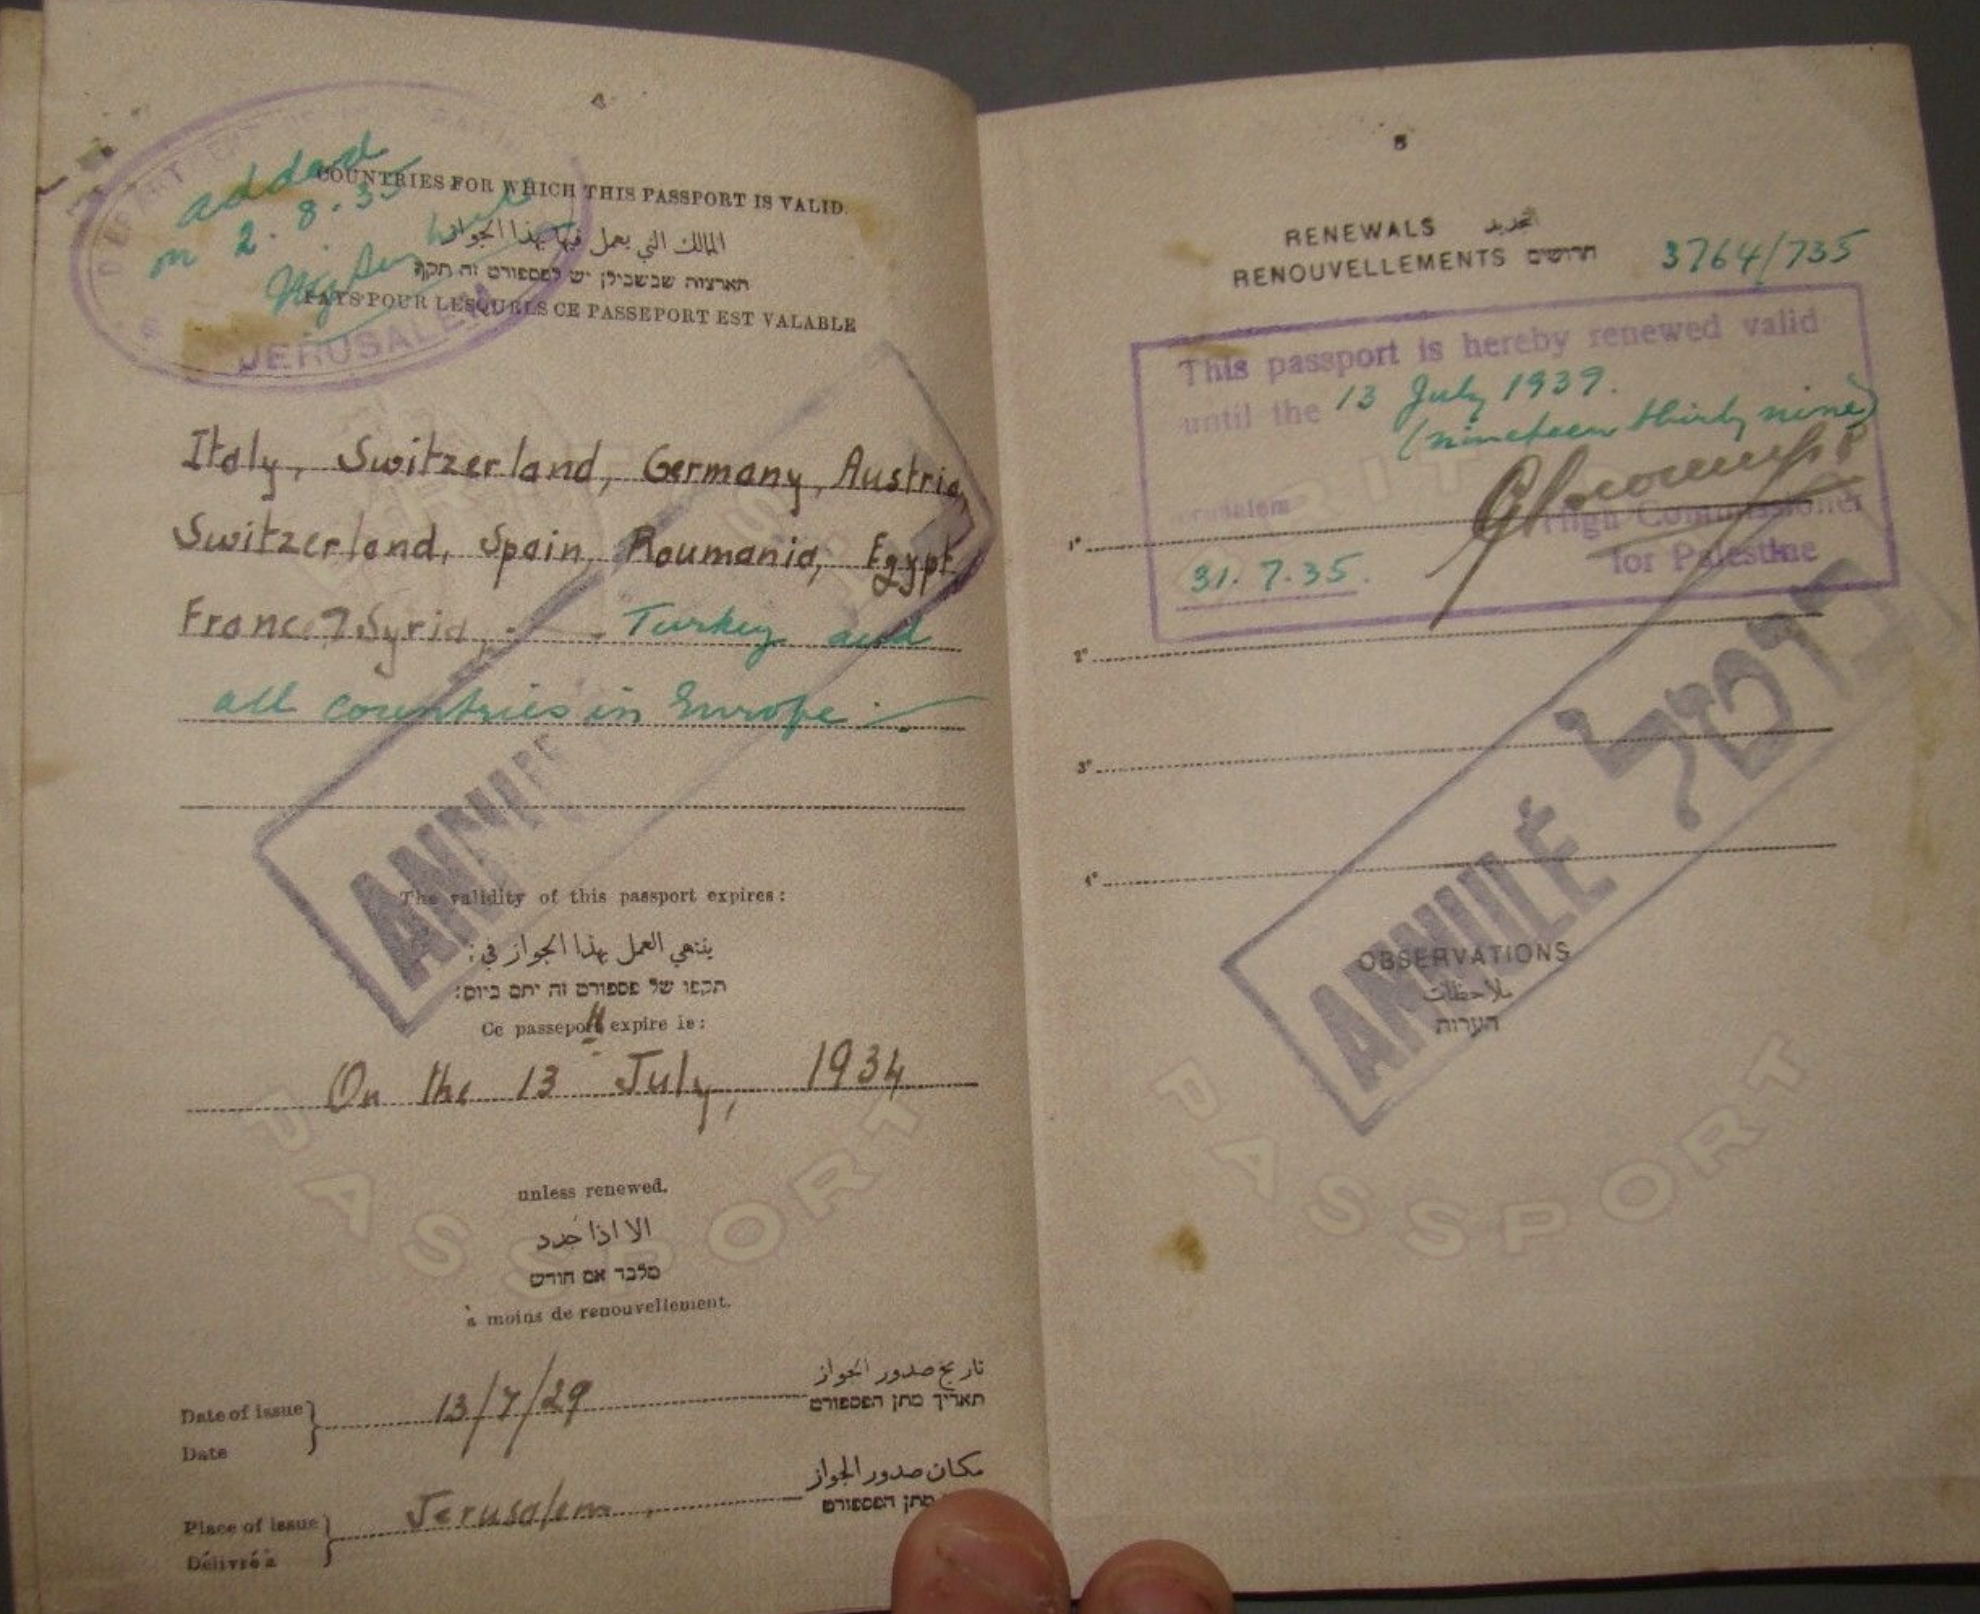 4
COUNTRIES FOR WHICH THIS PASSPORT IS VALID.
الممالك التي يعمل فيها بهذا الجواز
הארצות שבשבילן יש לפספורט זה תקף
PAYS POUR LESQUELS CE PASSEPORT EST VALABLE
added
on 2.8.35
JERUSALEM
Italy, Switzerland, Germany, Austria,
Switzerland, Spain, Roumania, Egypt,
France, Syria, Turkey and
all countries in Europe
The validity of this passport expires:
ينتهي العمل بهذا الجواز في:
תקפו של פספורט זה יתם ביום:
Ce passeport expire le:
On the 13 July, 1934
unless renewed.
الا اذا جدد
מלבד אם חודש
à moins de renouvellement.
تاريخ صدور الجواز
Date of issue 13/7/29 תאריך מתן הפספורט
Date
مكان صدور الجواز
Place of issue Jerusalem מתן הפספורט
Délivré à
PASSPORT
5
RENEWALS التجديد
RENOUVELLEMENTS חדושים
3764/735
This passport is hereby renewed valid
until the 13 July 1939.
(nineteen thirty nine)
High Commissioner
for Palestine
31.7.35.
1°
2°
3°
4°
ANNULÉ בוטל
OBSERVATIONS
ملاحظات
הערות
PASSPORT